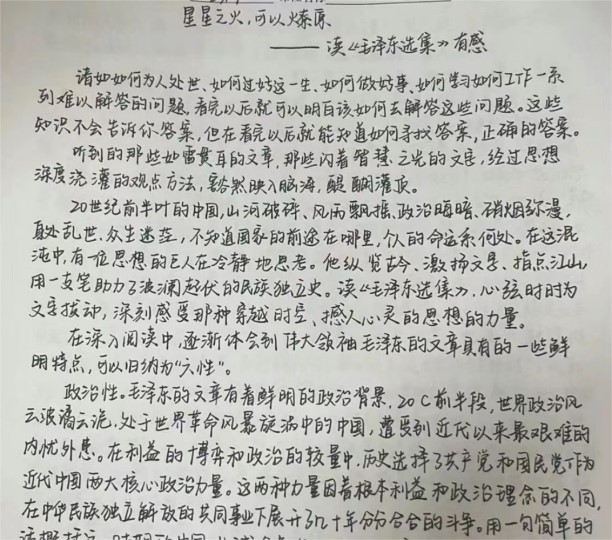 星星之火,可以燎原
——读《毛泽东选集》有感
诸如如何为人处世、如何过好这一生、如何做好事、如何学习如何工作一系
列难以解答的问题,看完以后就可以明白该如何去解答这些问题。这些
知识不会告诉你答案,但在看完以后就能知道如何寻找答案,正确的答案。
听到的那些如雷贯耳的文章,那些闪着智慧之光的文字,经过思想
深度浇灌的观点方法,豁然映入脑海,醍醐灌顶。
20世纪前半叶的中国,山河破碎、风雨飘摇、政治晦暗、硝烟弥漫,
身处乱世、众生迷茫,不知道国家的前途在哪里,个人的命运系何处。在这混
沌中,有一位思想的巨人在冷静地思考。他纵览古今、激扬文字、指点江山,
用一支笔助力了波澜起伏的民族独立史。读《毛泽东选集》,心弦时时为
文字拨动,深刻感受那种穿越时空、撼人心灵的思想的力量。
在深入阅读中,逐渐体会到伟大领袖毛泽东的文章具有的一些鲜
明特点,可以归纳为"六性"。
政治性。毛泽东的文章有着鲜明的政治背景,20C前半段,世界政治风
云波谲云诡,处于世界革命风暴旋涡中的中国,遭受到近代以来最艰难的
内忧外患。在利益的博弈和政治的较量中,历史选择了共产党和国民党作为
近代中国两大核心政治力量。这两种力量因着根本利益和政治理念的不同,
在中华民族独立解放的共同事业下展开了几十年分分合合的斗争。用一句简单的